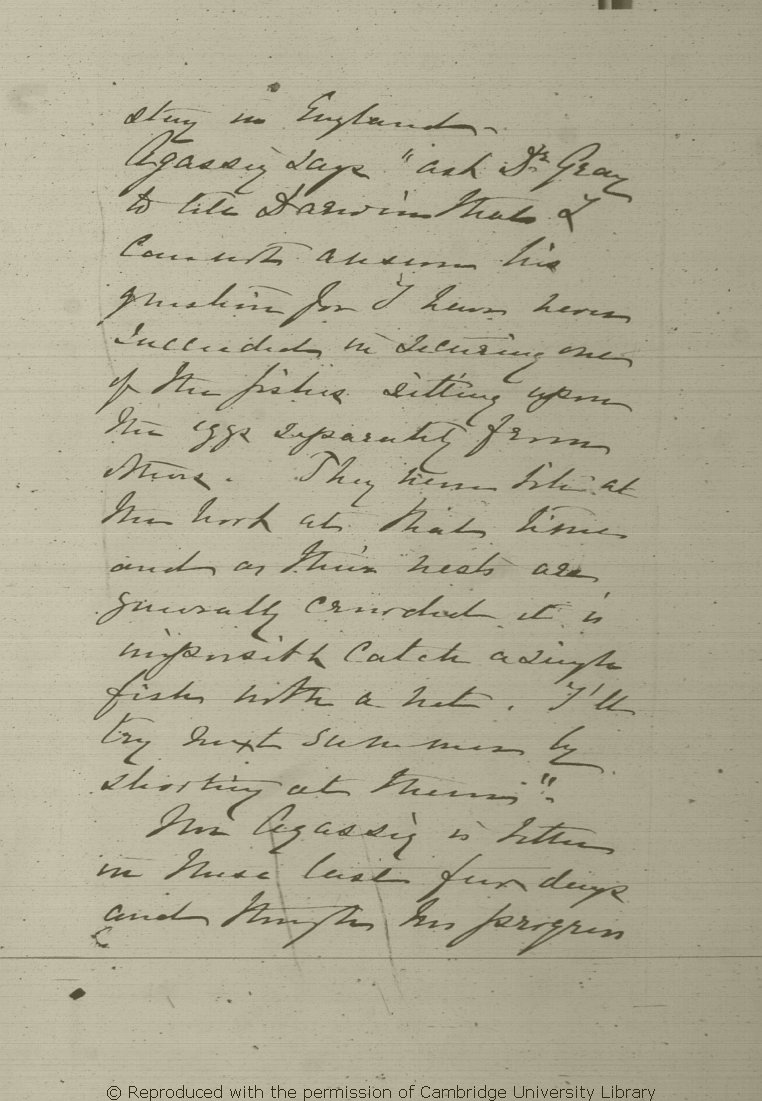 stay in England—
Agassiz says "ask Dr. Gray
to tell Darwin that I
cannot answer his
question for I have never
succeeded in securing one
of the fishes sitting upon
the eggs separately from
others. They never bite at
the hook at that time
and as their nests are
generally crowded it is
impossible catch a single
fish with a net. I'll
try next summer by
shooting at them".
Mr Agassiz is better
in these last few days
and though his progress
© Reproduced with the permission of Cambridge University Library